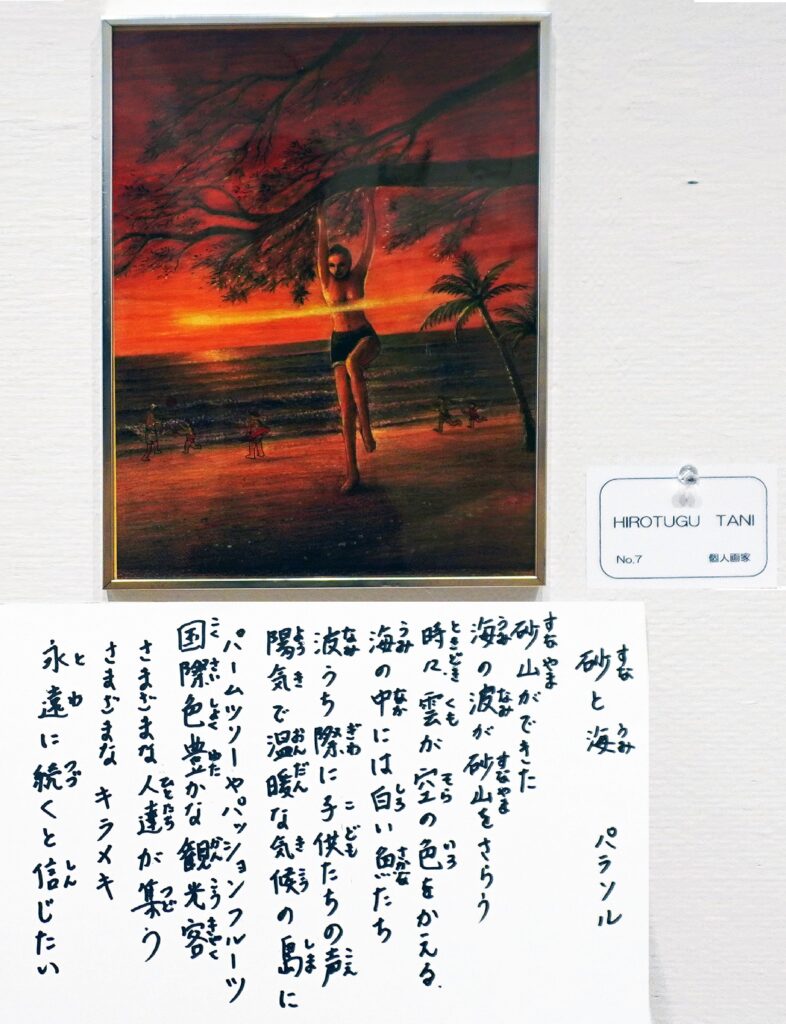 HIROTUGU TANI
No.7 個人画家
砂と海 パラソル
砂山ができた
海の波が砂山をさらう
時々雲が空の色をかえる
海の中には白い魚たち
波うち際に子供たちの声
陽気で温暖な気候の島に
パームツリーやパッションフルーツ
国際色豊かな観光客
さまざまな人達が集う
さまざまなキラメキ
永遠に続くと信じたい